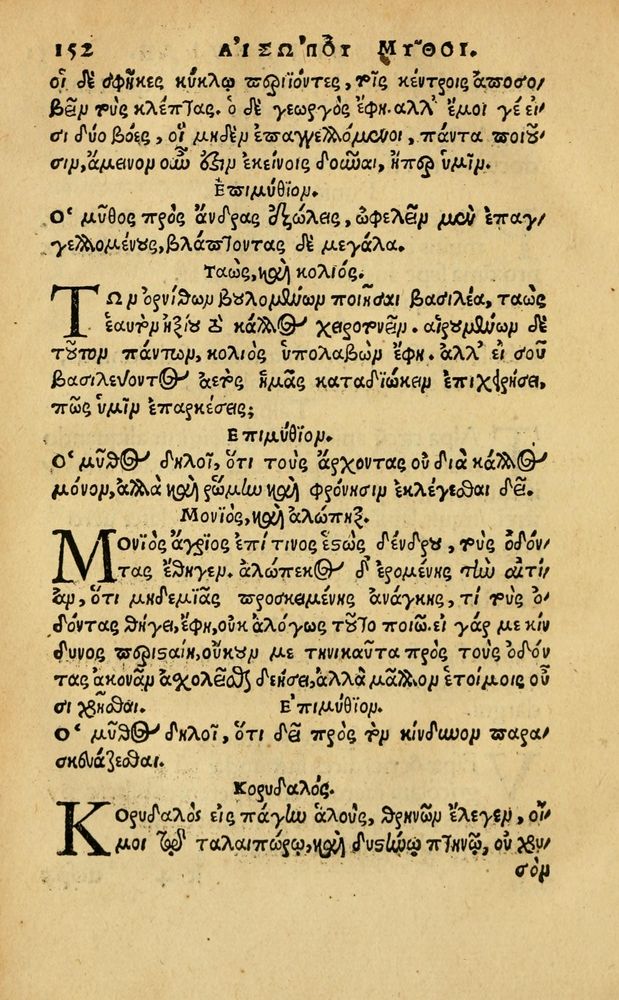 152 ΑΙΣΩΠΟΥ ΜΥΘΟΙ.
οἱ δὲ σφῆκες κύκλῳ περιϊόντες, τοῖς κέντροις ἀποσο‐
βεῖν τοὺς κλέπτας. ὁ δὲ γεωργὸς ἔφη. ἀλλ' ἔμοι γέ εἰ‐
σι δύο βόες, οἳ μηδὲν ἐπαγγελλόμενοι, πάντα ποιοῦ‐
σιν, ἄμεινον οὖν ὅξιν ἐκείνοις δοῦναι, ἤπερ ὑμῖν.
Ἐπιμύθιον.
Ὁ μῦθος πρὸς ἄνδρας ἐξώλεις, ὠφελεῖν μὲν ἐπαγ‐
γελλομένους, βλάπτοντας δὲ μεγάλα.
Ταὼς, καὶ κολιός.
Τῶν ὀρνίθων βουλομένων ποιῆσαι βασιλέα, ταὼς
ἑαυτὸν ἠξίου διὰ κάλλος χειροτονεῖν. αἱρουμένων δὲ
τοῦτον πάντων, κολιὸς ὑπολαβὼν ἔφη. ἀλλ' εἰ σοῦ
βασιλεύοντος ἀετὸς ἡμᾶς καταδιώκειν ἐπιχειρήσει,
πῶς ὑμῖν ἐπαρκέσεις;
Ἐπιμύθιον.
Ὁ μῦθος δηλοῖ, ὅτι τοὺς ἄρχοντας οὐ διὰ κάλλος
μόνον, ἀλλὰ καὶ ῥώμην καὶ φρόνησιν ἐκλέγεσθαι δεῖ.
Μονιὸς, καὶ ἀλώπηξ.
Μονιὸς ἄγριος ἐπί τινος ἑστὼς δένδρου, τοὺς ὀδόν‐
τας ἔθηγεν. ἀλώπεκος δ' ἐρομένης τὴν αἰτί‐
αν, ὅτι μηδεμιᾶς προσκειμένης ἀνάγκης, τί τοὺς ὀ‐
δόντας θήγει, ἔφη, οὐκ ἀλόγως τοῦτο ποιῶ. εἰ γάρ με κίν
δυνος περισταίη, οὐκοῦν με τηνικαῦτα πρὸς τοὺς ὀδόν
τας ἀκονᾶν ἀσχολεῖσθαι δεήσει, ἀλλὰ μᾶλλον ἑτοίμοις οὖ
σι χρῆσθαι. Ἐπιμύθιον.
Ὁ μῦθος δηλοῖ, ὅτι δεῖ πρὸς τὸν κίνδυνον παρα‐
σκευάζεσθαι.
Κορυδαλός.
Κορυδαλὸς εἰς πάγην ἁλοὺς, θρηνῶν ἔλεγεν, οἴ‐
μοι τῷ ταλαιπώρῳ, καὶ δυστήνῳ πτηνῷ, οὐ χρυ‐
σὸν